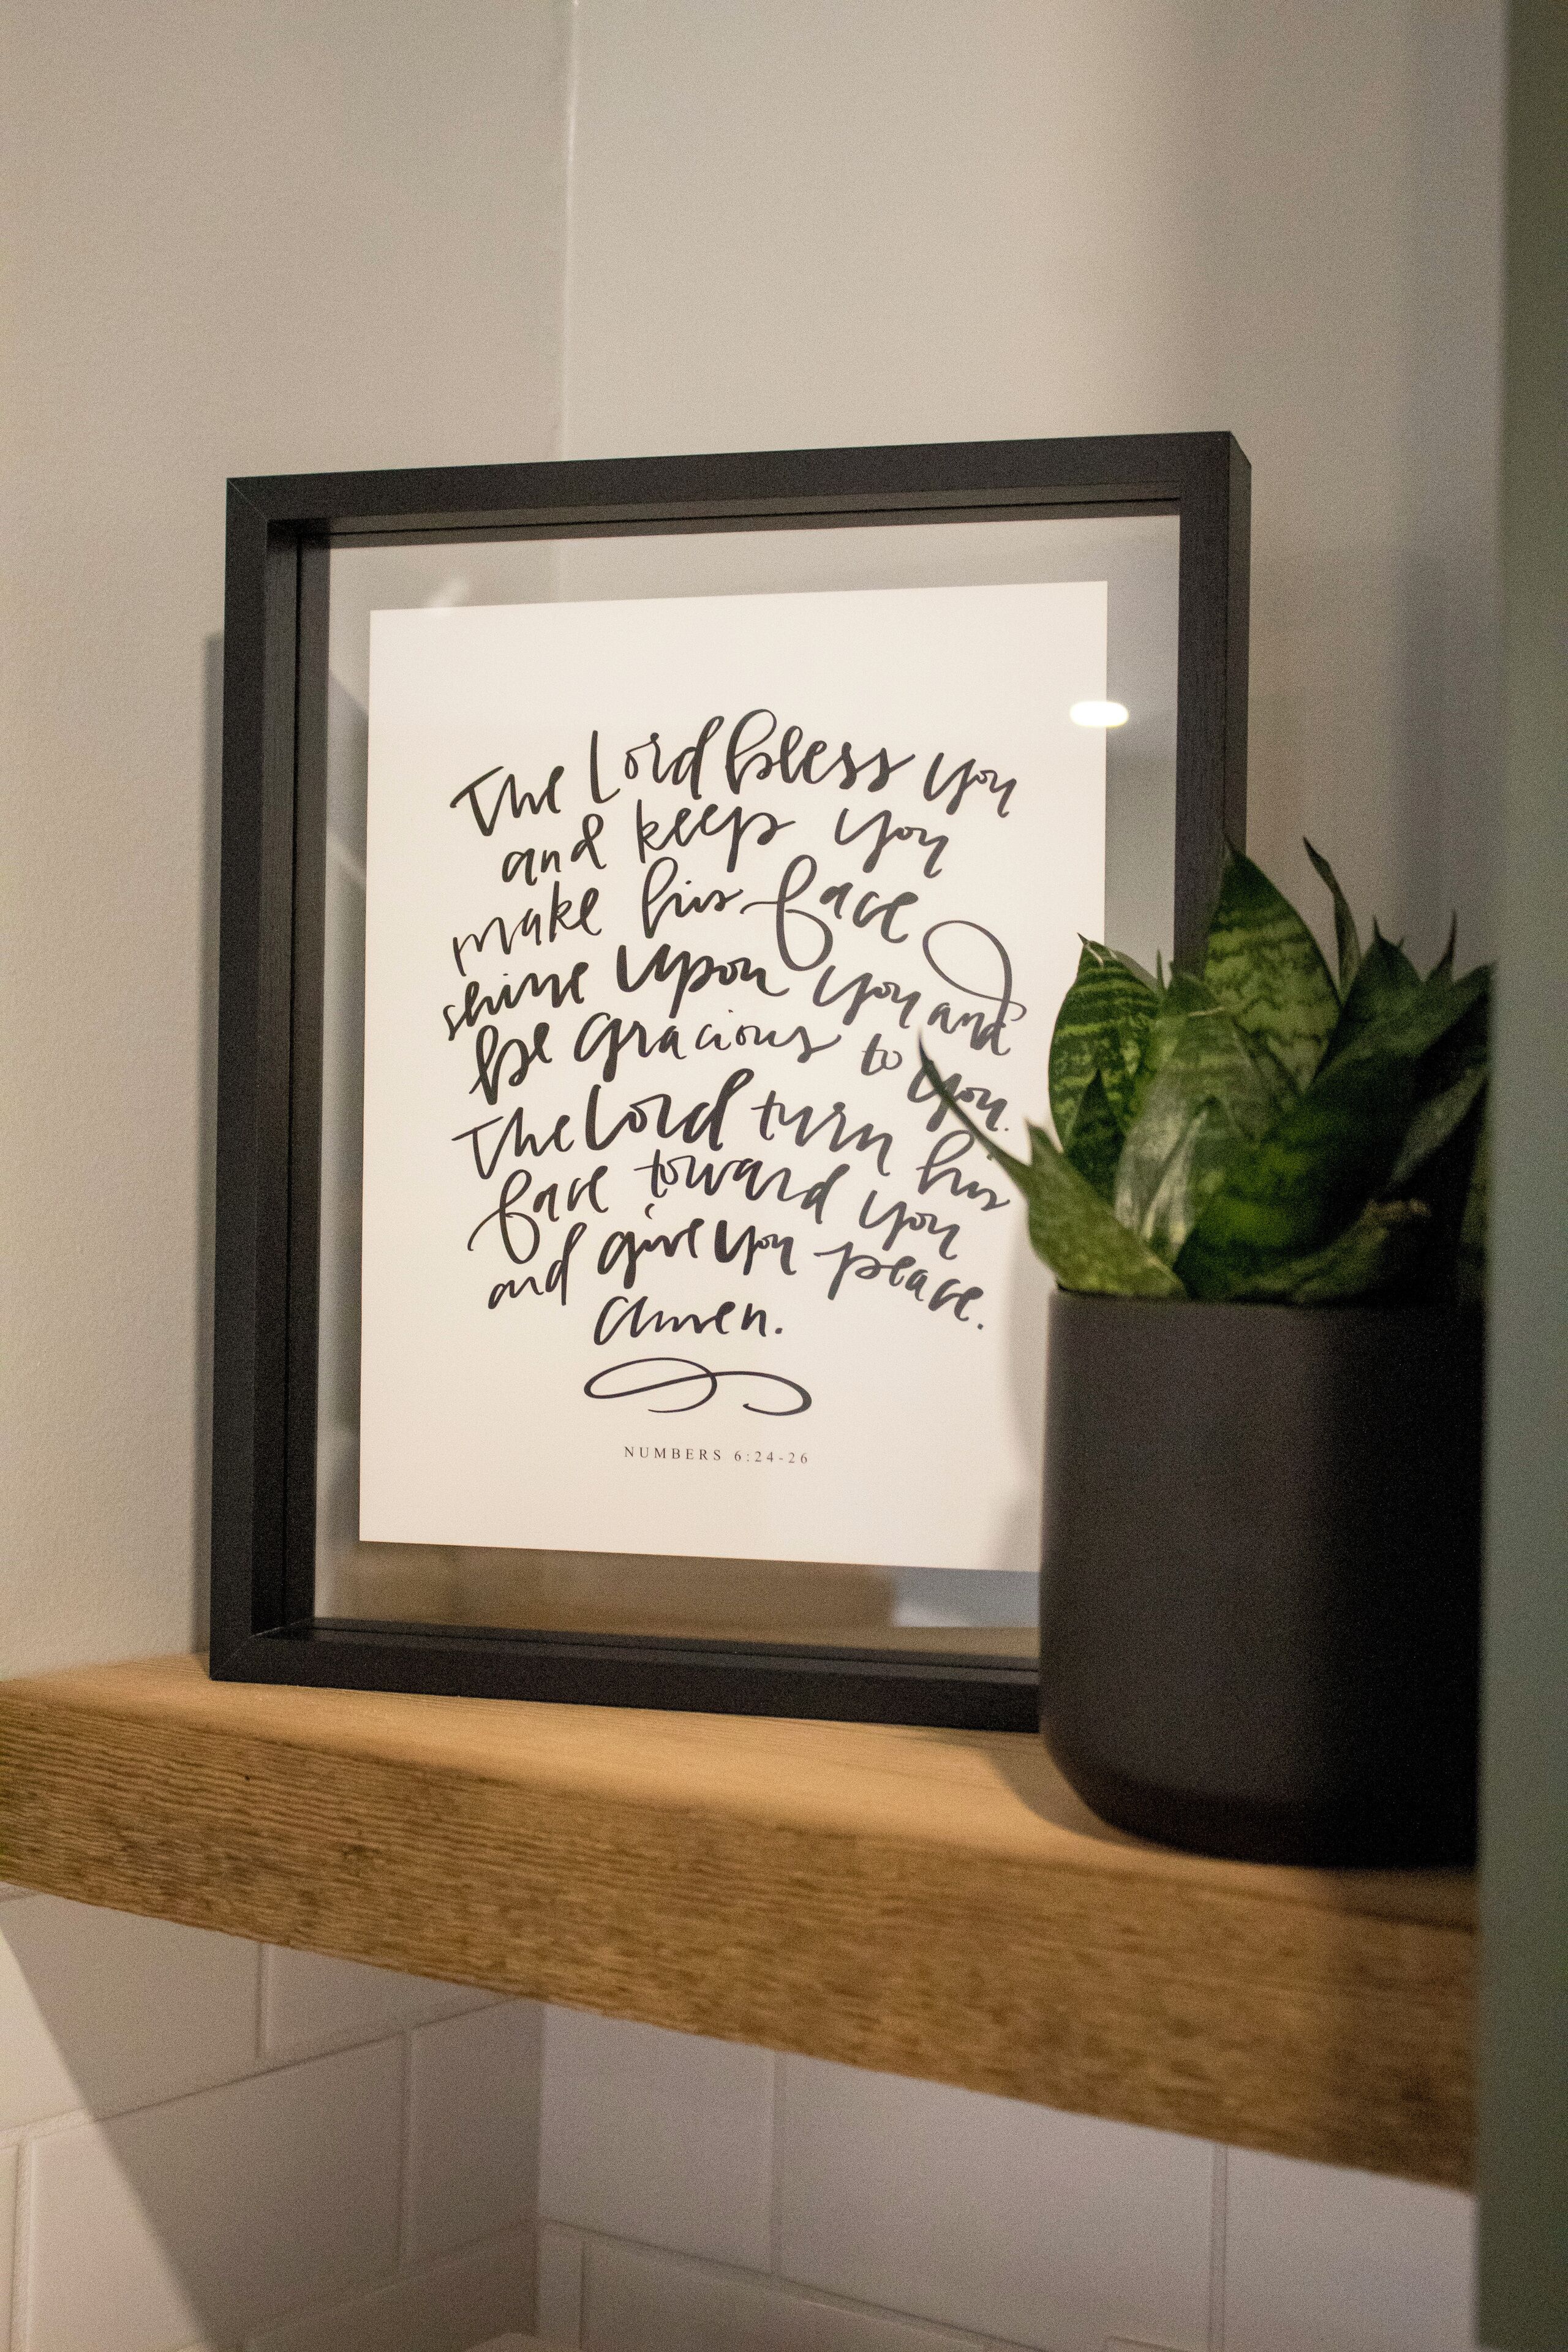 The Lord bless you
and keep you
make his face
shine upon you and
be gracious to you.
The Lord turn his
face toward you
and give you peace.
Amen.
NUMBERS 6:24-26